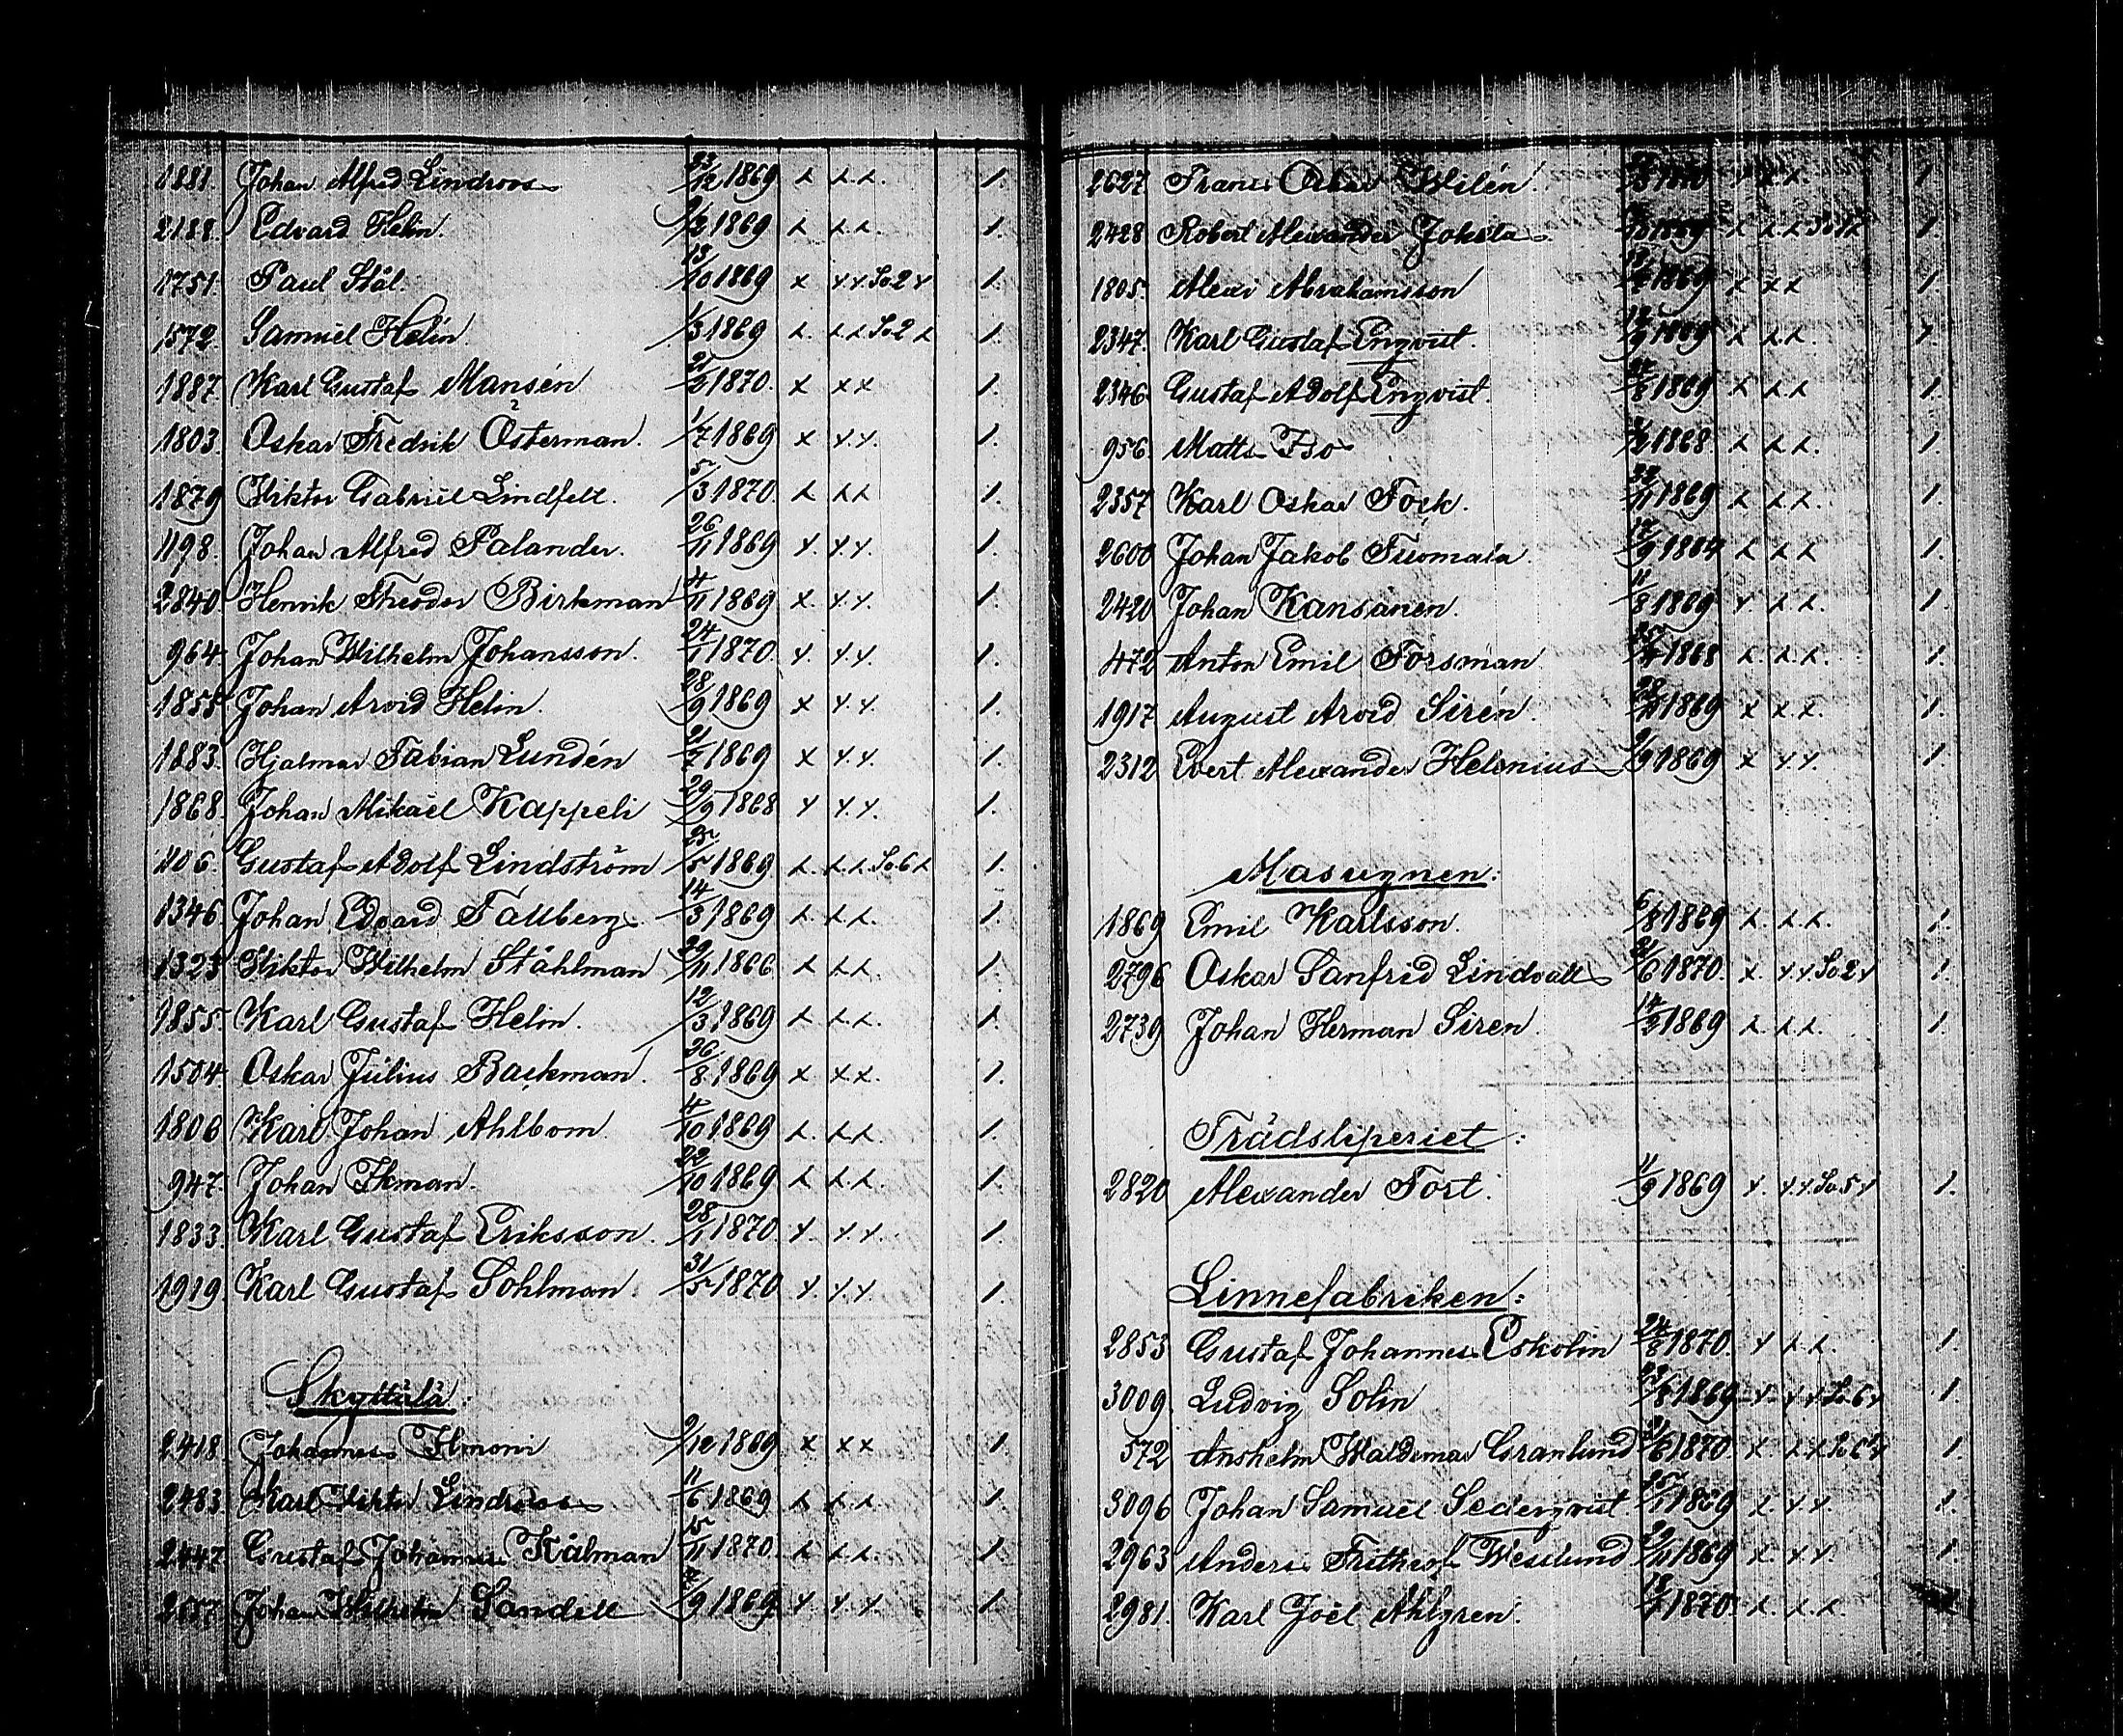 1881. Johan Alfred Lindroos 23/12 1869 x x.x. 1.
2188. Edvard Helin. 9/2 1869 x x.x. 1.
1751. Paul Stål 13/10 1869 x x.x. So 2 x 1.
1572. Samuel Helin. 1/3 1869 x. x.x. So 2 x 1.
1887. Karl Gustaf Mansén 21/2 1870. x x x 1.
1803. Oskar Fredrik Österman. 1/7 1869 x x.x. 1.
1879 Viktor Gabriel Lindfelt. 5/3 1870. x x x 1.
1198. Johan Alfred Palander. 26/11 1869 x. x.x. 1.
2840 Henrik Theodor Birkman 4/11 1869 x. x.x. 1.
964. Johan Wilhelm Johansson. 24/1 1870. x. x.x. 1.
1855 Johan Arvid Helin. 28/9 1869 x x.x. 1.
1883. Hjalmar Fabian Lundén 21/7 1869 x x.x. 1.
1868. Johan Mikael Kappeli 29/9 1868 x x.x. 1.
Gustaf Adolf Lindström 25/5 1869 x. x.x. So 6 x 1.
1346. Johan Edvard Fallberg 14/3 1869 x. x.x. 1.
1323 Viktor Wilhelm Ståhlman 29/11 1866 x x.x. 1.
1855. Karl Gustaf Helin. 12/3 1869 x x.x. 1.
1504 Oskar Julius Backman. 26/8 1869 x x x. 1.
1806 Karl Johan Ahlbom. 4/10 1869 x. x.x 1.
947. Johan Ikman. 22/10 1869 x x.x. 1.
1833. Karl Gustaf Eriksson. 28/1 1870. x. x.x 1.
1919. Karl Gustaf Sohlman. 31/5 1870 x. x.x 1.
Skyttälä:
2418. Johannes Ilmoni 9/12 1869 x x x 1.
2483. Karl Viktor Lindroos 11/6 1869 x x.x. 1.
2447. Gustaf Johannes Kålman 15/11 1870. x x.x. 1.
2657. Johan Wilhelm Sandell 7/9 1869 x x.x. 1.
2627 Frans Oskar Wilén. 1.
2428 Robert Alexander Jokela 1869 x x.x. 1.
1805. Alexi Abrahamsson 1869 x x x 1.
2347. Karl Gustaf Engvist. 1869 x x.x. 1.
2346 Gustaf Adolf Engvist. 1869 x x.x 1.
956. Matts Iso 1868. x x.x. 1.
2357 Karl Oskar Fock. 22/11 1869 x x.x. 1.
2600 Johan Jakob Tuomala. 17/9 1864 x x.x 1.
2420 Johan Kansanen. 11/8 1869 x x.x. 1.
472 Anton Emil Forsman 1868 x. x.x. 1.
1917 August Arvid Sirén. 1869 x x.x. 1.
2312 Evert Alexander Helenius 9/9 1869 x x.x. 1.
Masugnen:
1869 Emil Karlsson. 6/8 1869 x. x.x. 1.
2796 Oskar Sanfrid Lindvall 21/6 1870. x x.x So 2 x 1.
2739 Johan Herman Siren. 1869 x. x.x. 1.
Trädsliperiet:
2820 Alexander Fort. 11/9 1869 x. x.x. So 5 x 1.
Linnefabriken:
2853 Gustaf Johannes Eskolin 24/8 1870. x x.x. 1.
3009. Ludvig Solin 1869 x x.x So 6 x 1.
572 Anshelm Waldemar Granlund 1870. x. 1.
3096 Johan Samuel Sederqvist. 1869 x x.x. 1.
2963 Anders Frithiof Weslund 1869 x. x.x. 1.
2981. Karl Joël Ahlgren. 1870. x. x.x.